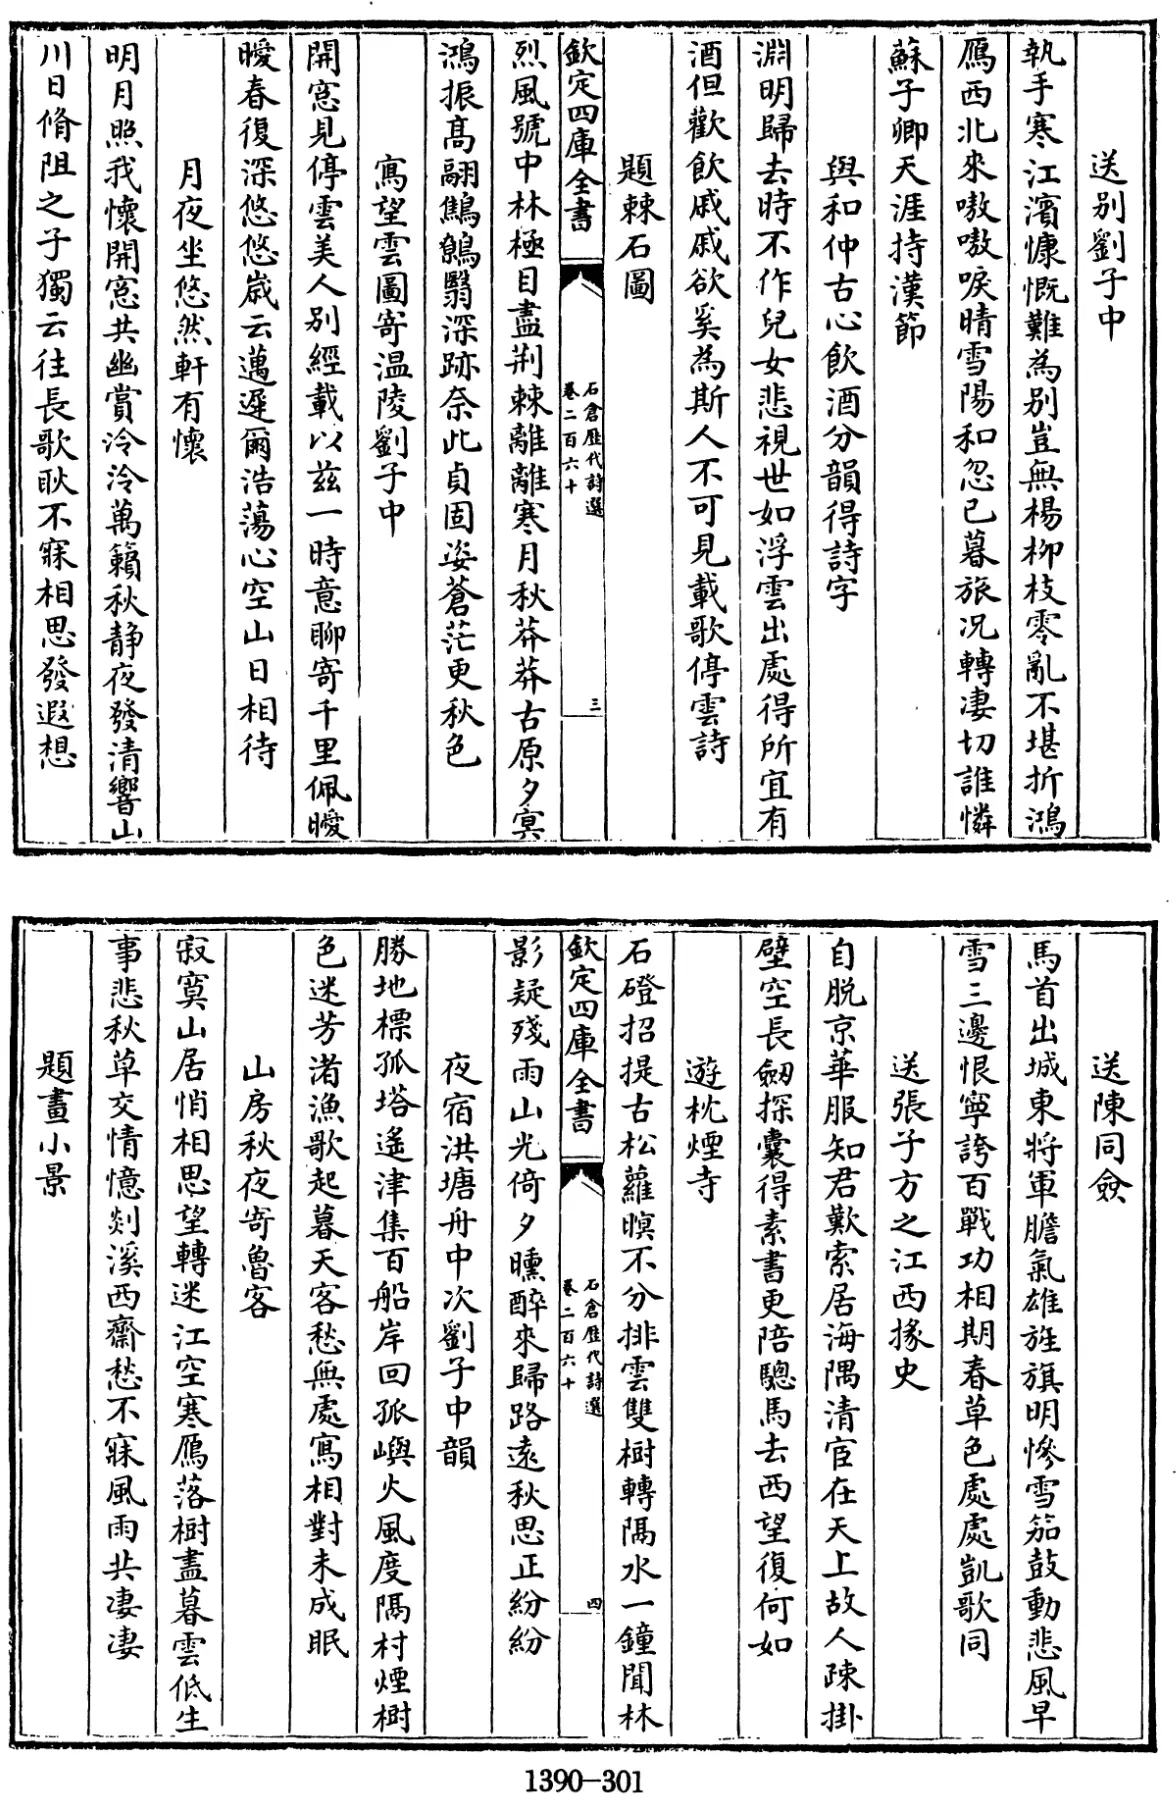 送別劉子中
執手寒江濱慷慨難為別豈無楊柳枝零亂不堪折鴻
鴈西北來嗷嗷唳晴雪陽和忽已暮旅况轉凄切誰憐
蘇子卿天涯持漢節
與和仲古心飲酒分韻得詩字
淵明歸去時不作兒女悲視世如浮雲出處得所宜有
酒但歡飲戚戚欲奚為斯人不可見載歌停雲詩
題棘石圖
欽定四庫全書
石倉歷代詩選
卷二百六十
三
烈風號中林極目盡荆棘離離寒月秋莽莽古原夕寞
鴻振髙翮鷦鷯翳深跡奈此貞固姿蒼茫更秋色
寫望雲圖寄温陵劉子中
開窓見停雲美人別經載以兹一時意聊寄千里佩曖
曖春復深悠悠嵗云邁遲爾浩蕩心空山日相待
月夜坐悠然軒有懷
明月照我懷開窓共幽賞泠泠萬籟秋静夜發清響山
川日脩阻之子獨云往長歌耿不寐相思發遐想
送陳同僉
馬首出城東將軍膽氣雄旌旗明慘雪笳鼓動悲風早
雪三邊恨寧誇百戰功相期春草色處處凱歌同
送張子方之江西掾史
自脱京華服知君歎索居海隅清宦在天上故人疎掛
壁空長劒探囊得素書更陪驄馬去西望復何如
遊枕煙寺
石磴招提古松蘿暝不分排雲雙樹轉隔水一鐘聞林
欽定四庫全書
石倉歷代詩選
卷二百六十
四
影疑殘雨山光倚夕曛醉來歸路遠秋思正紛紛
夜宿洪塘舟中次劉子中韻
勝地標孤塔遙津集百船岸回孤嶼火風度隔村煙樹
色迷芳渚漁歌起暮天客愁無處寫相對未成眠
山房秋夜寄魯客
寂寞山居悄相思望轉迷江空寒鴈落樹盡暮雲低生
事悲秋草交情憶剡溪西齋愁不寐風雨共凄凄
題畫小景
1390-301